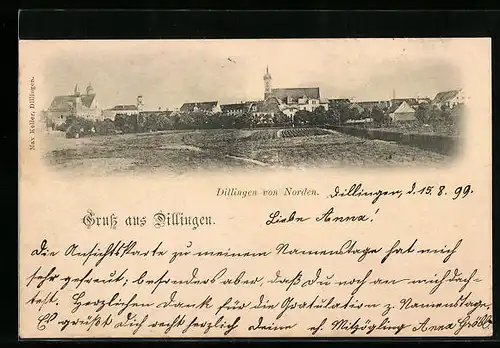 Max Keller, Dillingen.
Dillingen von Norden.
Gruß aus Dillingen.
Dillingen, d. 15. 8. 99.
Liebe Anna!
Die Ansichtskarte zu meinem Namenstage hat mich
sehr gefreut, besonders aber, daß Du noch an mich dach-
test. Herzlichen Dank für die Gratulation z. Namenstage.
Es grüßt Dich recht herzlich Deine eh. Mitzögling Anna